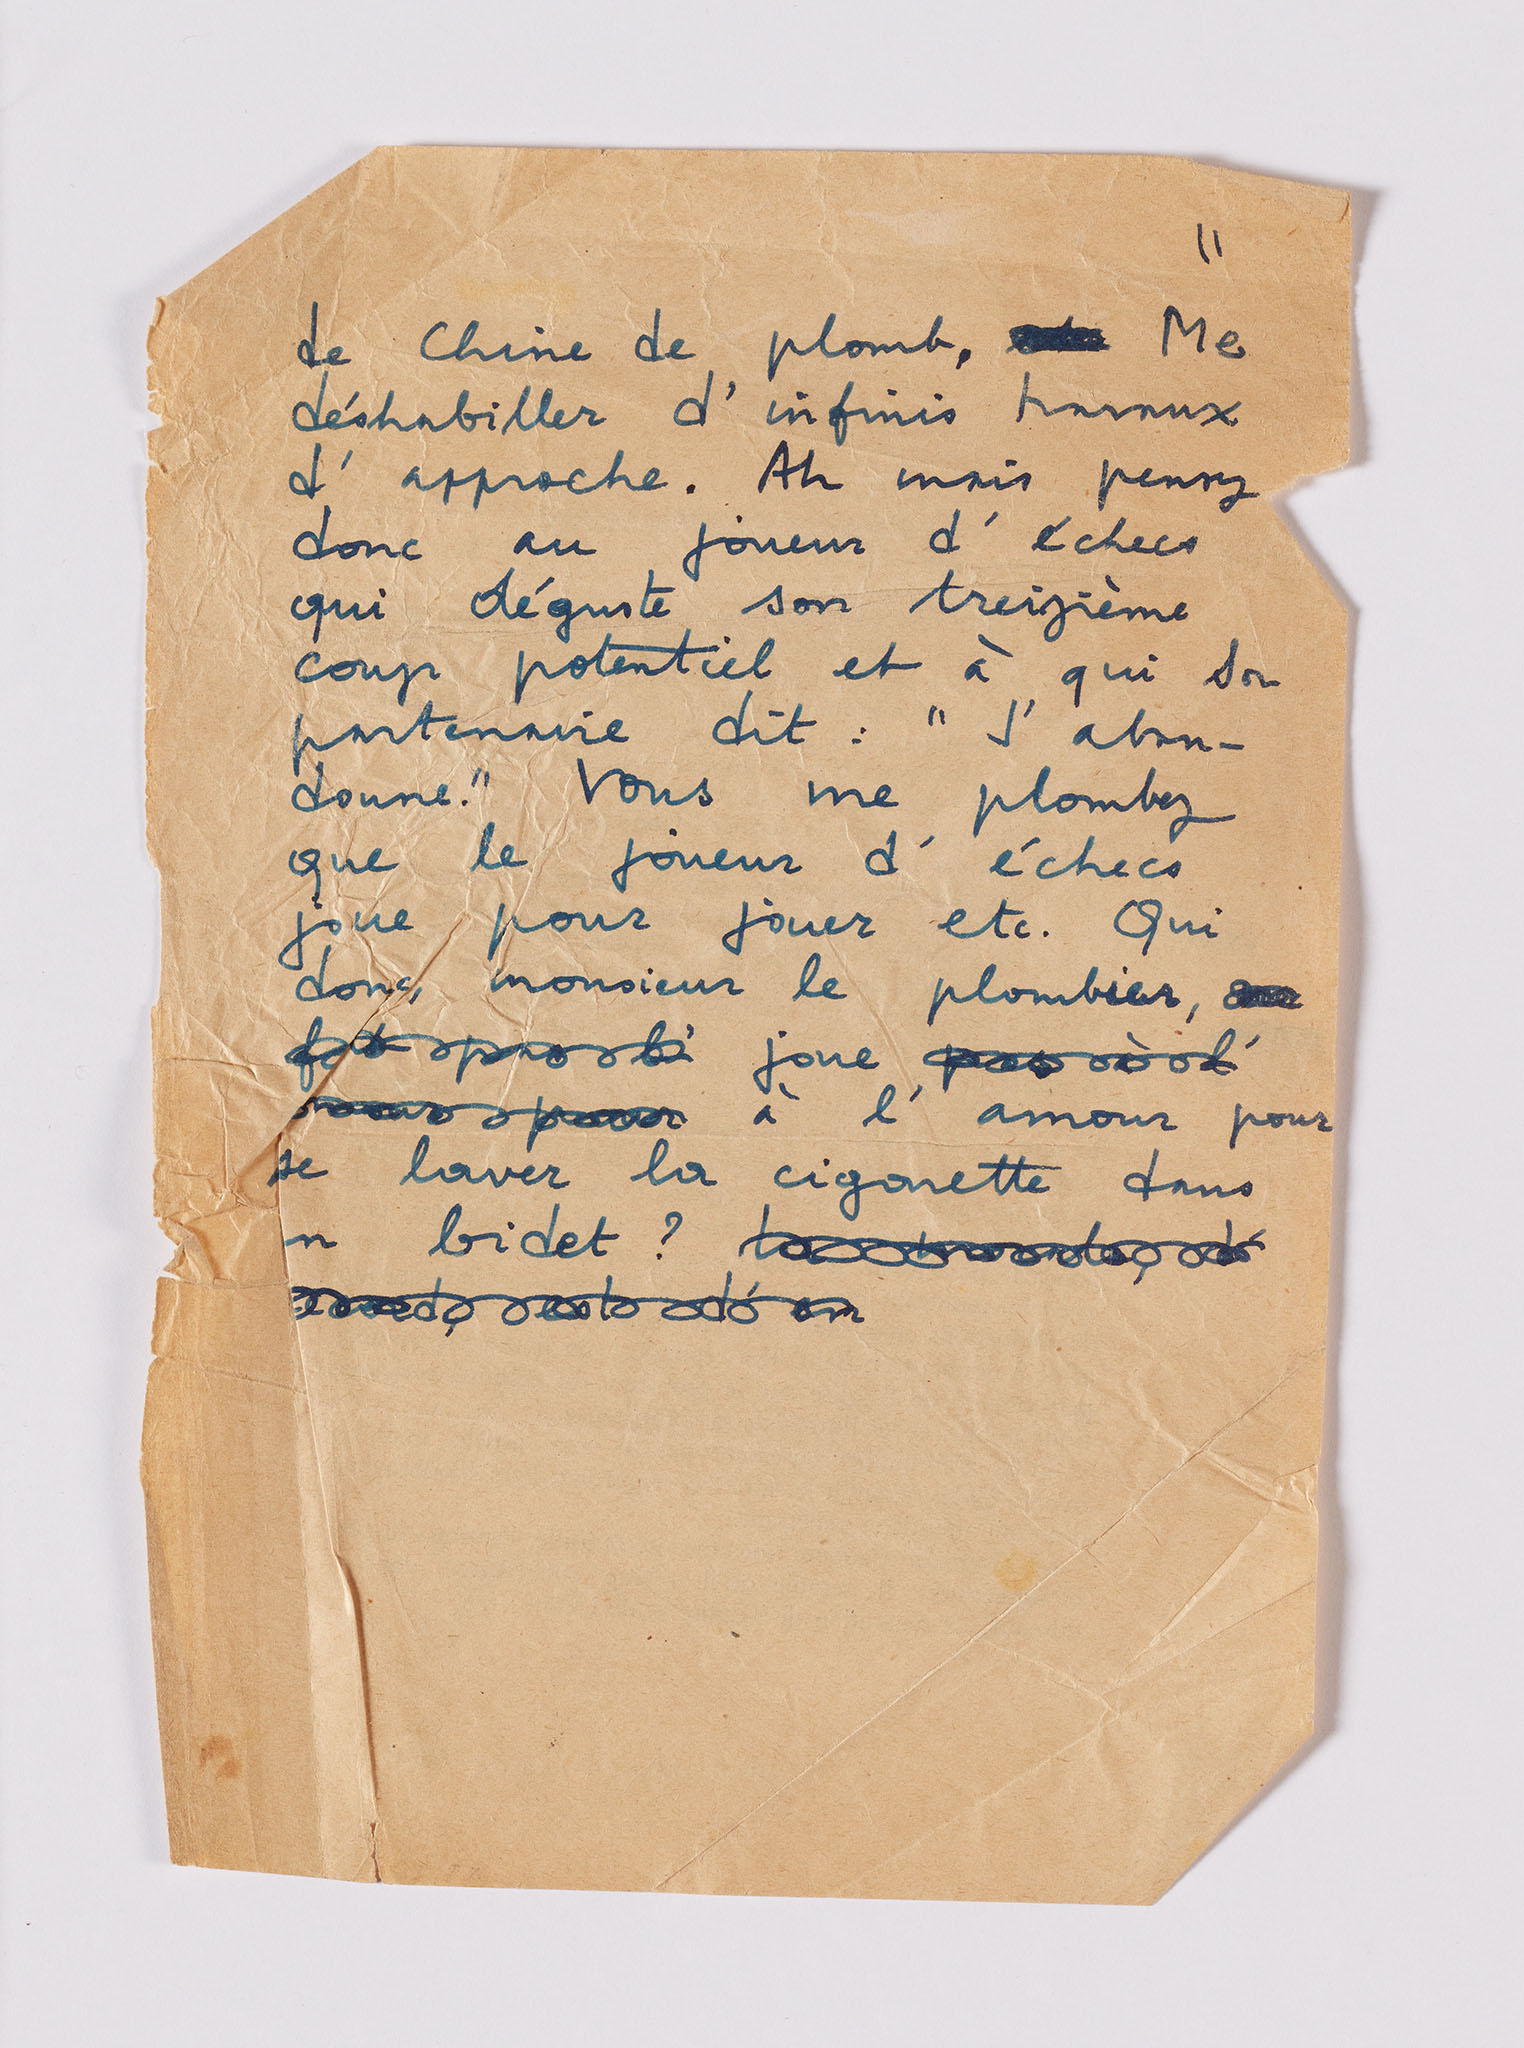 11
de Chine de plomb. Me
déshabiller d'infinis travaux
d'approche. Ah mais pensez
donc au joueur d'échecs
qui déguste son treizième
coup potentiel et à qui son
partenaire dit : "J'aban-
donne." Vous me plombez
que le joueur d'échecs
joue pour jouer etc. Qui
donc, monsieur le plombier,
joue
à l'amour pour
se laver la cigarette dans
n bidet ?